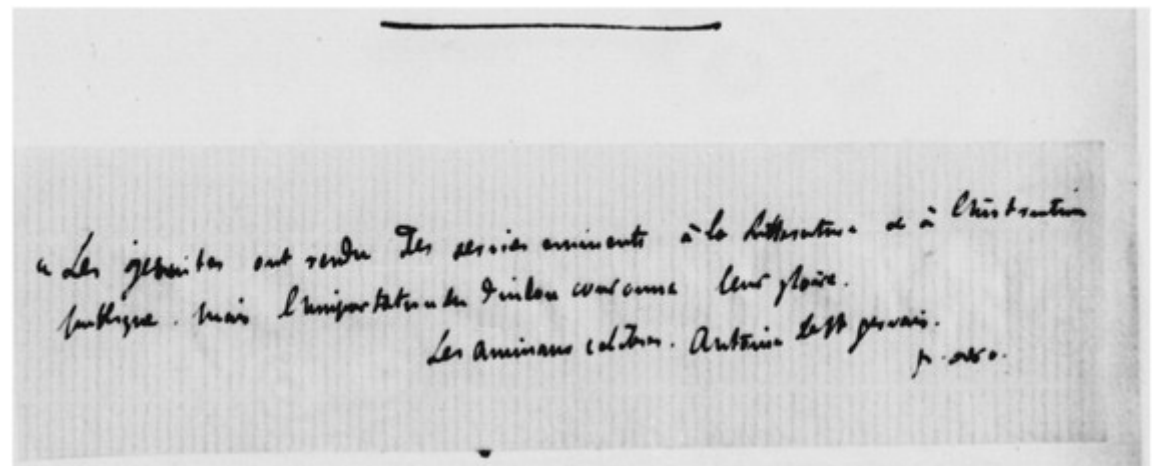 "Les jésuites ont rendu des services eminents à la littérature et à l'instruction
publique. mais l'importation du dindon couronne leur gloire.
Les animaux celebres. Antoine gervais.
p.